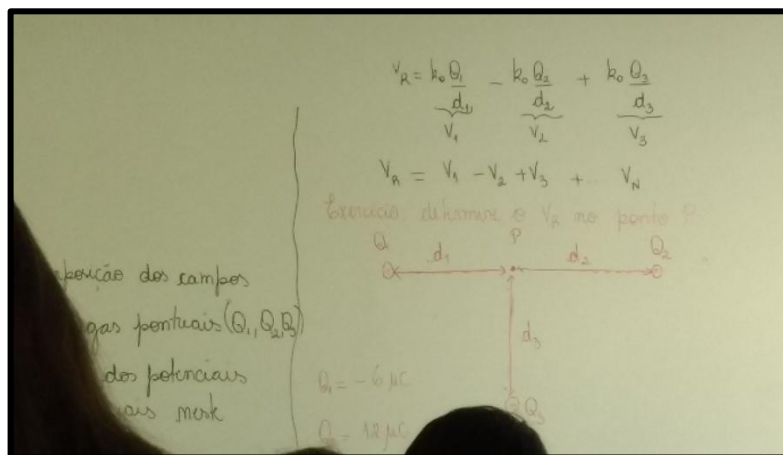 V_R = k₀ Q₁/d₁ - k₀ Q₂/d₂ + k₀ Q₃/d₃
V₁ V₂ V₃
V_R = V₁ - V₂ + V₃ + .. V_N
Exercício: determine o V_R no ponto P.
Q₁ d₁ P d₂ Q₂
d₃
Q₃
posição dos campos
gas pontuais (Q₁, Q₂, Q₃)
dos potenciais
ais nesk
Q₁ = - 6 μC
= 12 μC